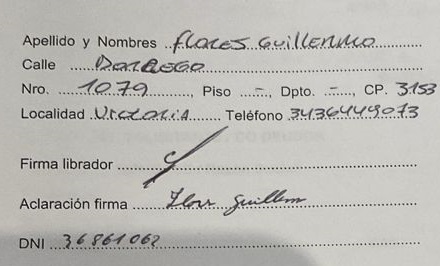 Apellido y Nombres ..Flores Guillermo............
Calle .....Dorrego..............................
Nro. .....1079............, Piso ...-..., Dpto. ..-...., CP. 3153
Localidad .Victoria....... Teléfono 3436449073
Firma librador ............................................
Aclaración firma .......Flores Guillerm....................
DNI ...36861062...........................................